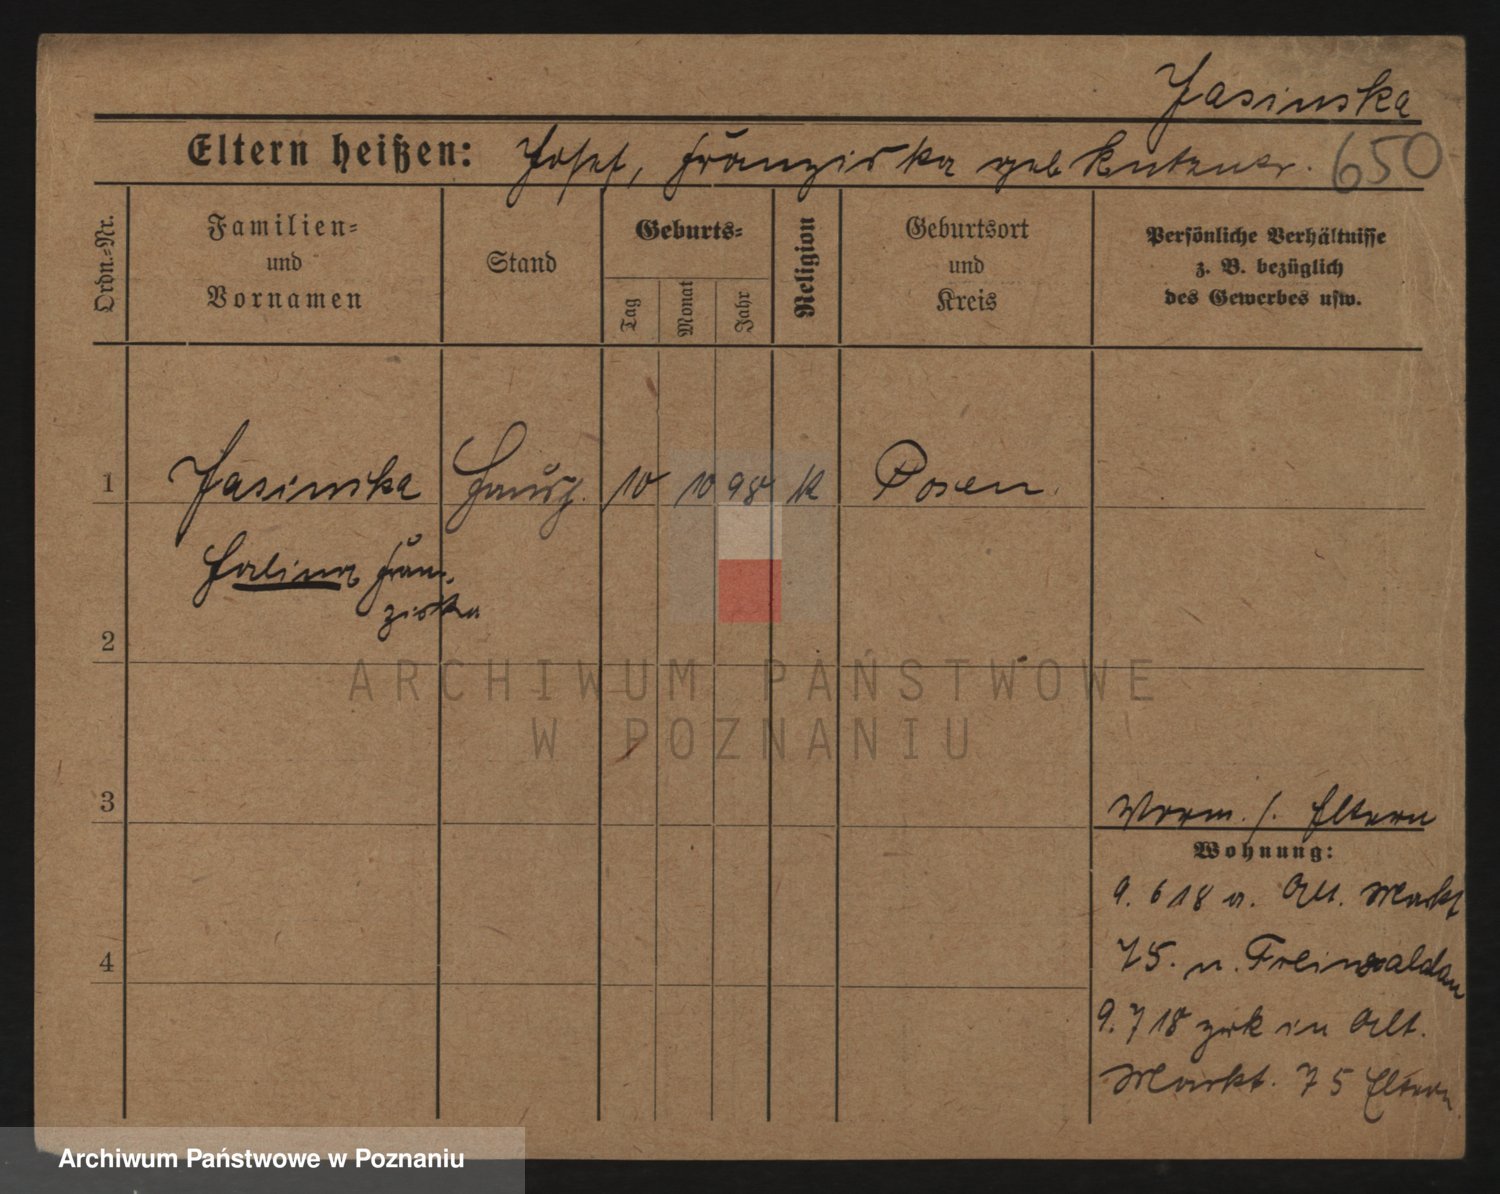 Jasinska
Eltern heißen: Josef, Franziska geb 650
Ordn.-Nr.
Familien-
und
Vornamen
Stand
Geburts-
Tag
Monat
Jahr
Religion
Geburtsort
und
Kreis
Persönliche Verhältnisse
z. B. bezüglich
des Gewerbes usw.
1 Jasinska 10 10 98 K Posen.
Halina Fran-
ziska
2
ARCHIWUM PAŃSTWOWE
W POZNANIU
3
Vorm. s. Eltern
Wohnung:
9. 6 18 a. Alt. Markt
4
75. n. Freiwaldau
9. 7 18 zrk in Alt.
Markt. 75 Eltern
Archiwum Państwowe w Poznaniu